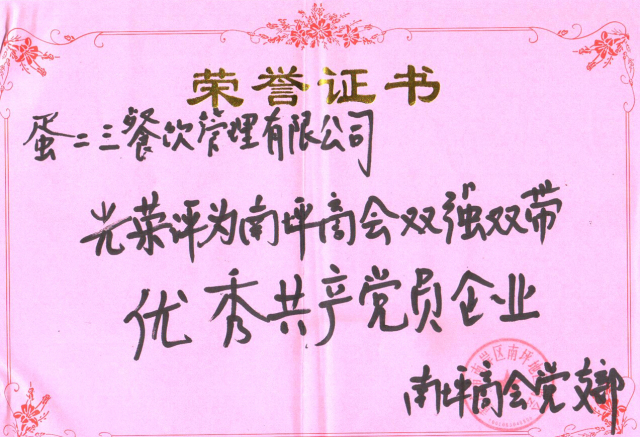 荣誉证书
蛋二三餐饮管理有限公司
光荣评为南坪商会双强双带
优秀共产党员企业
南坪商会党支部